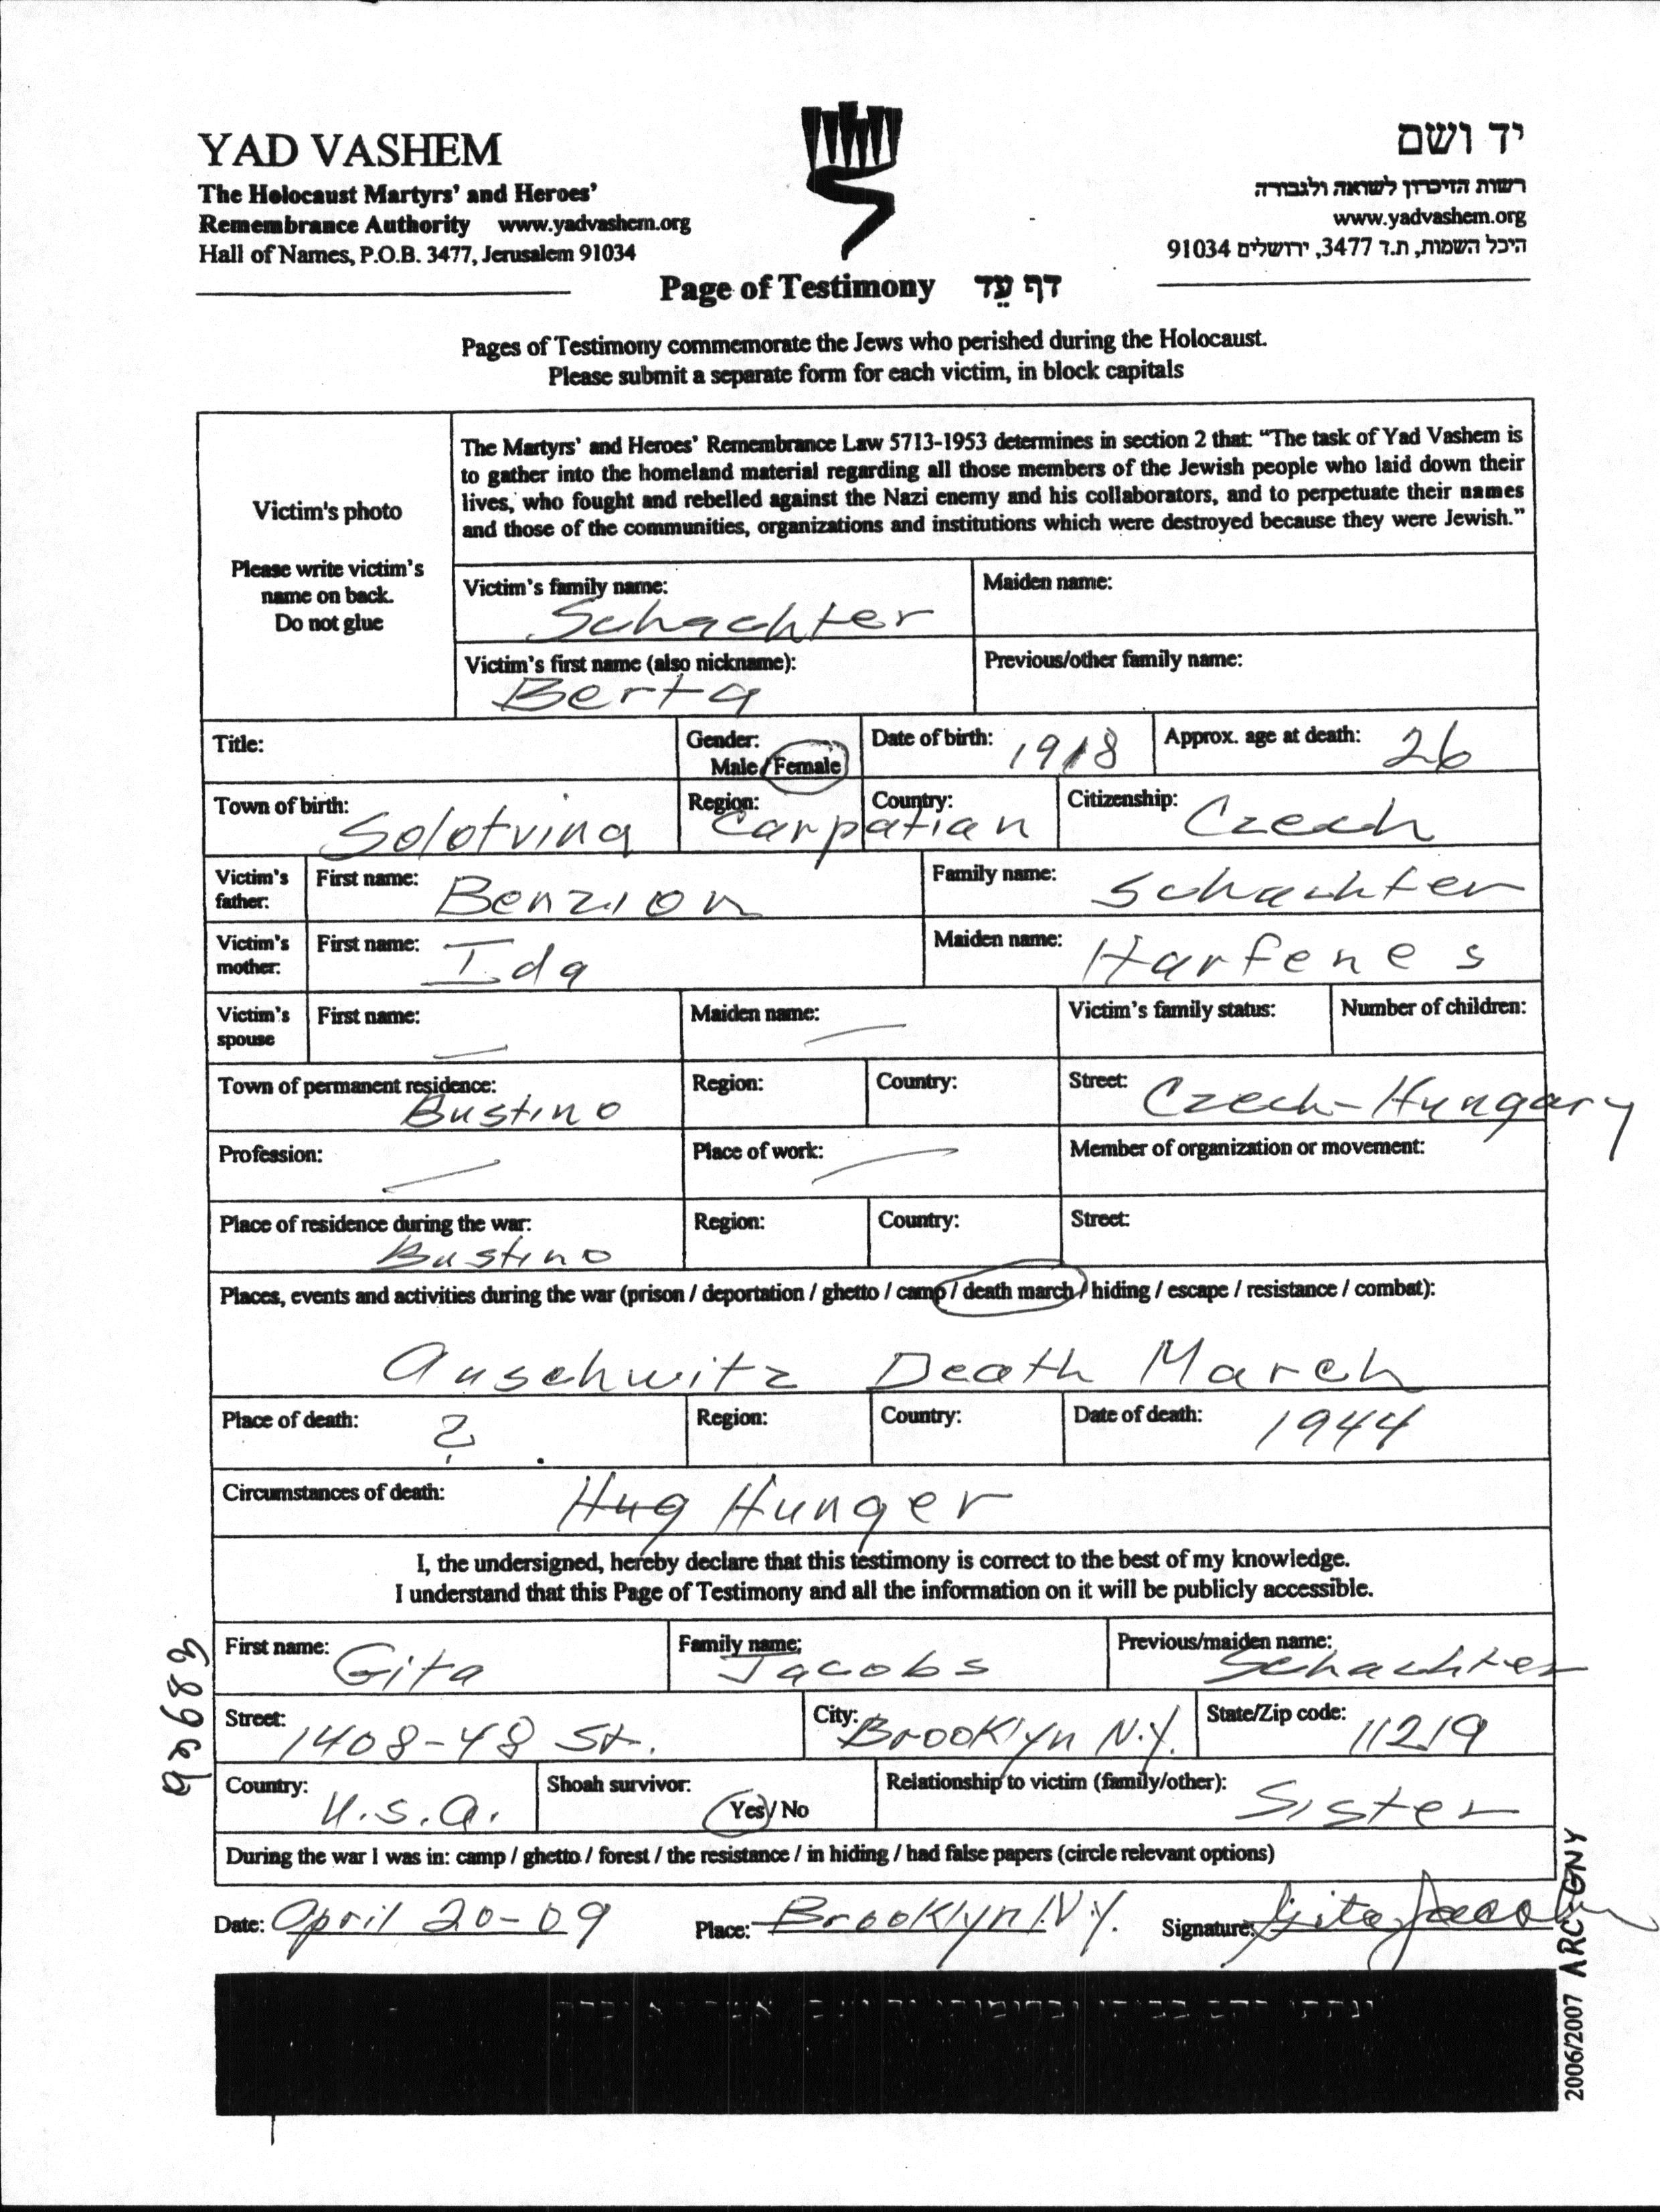 YAD VASHEM
The Holocaust Martyrs' and Heroes'
Remembrance Authority www.yadvashem.org
Hall of Names, P.O.B. 3477, Jerusalem 91034
יד ושם
רשות הזיכרון לשואה ולגבורה
www.yadvashem.org
היכל השמות, ת.ד 3477, ירושלים 91034
Page of Testimony דף עֵד
Pages of Testimony commemorate the Jews who perished during the Holocaust.
Please submit a separate form for each victim, in block capitals
Victim's photo
Please write victim's
name on back.
Do not glue
The Martyrs' and Heroes' Remembrance Law 5713-1953 determines in section 2 that: "The task of Yad Vashem is
to gather into the homeland material regarding all those members of the Jewish people who laid down their
lives, who fought and rebelled against the Nazi enemy and his collaborators, and to perpetuate their names
and those of the communities, organizations and institutions which were destroyed because they were Jewish."
Victim's family name: Schachter
Maiden name:
Victim's first name (also nickname): Berta
Previous/other family name:
Title:
Gender:
Male / Female
Date of birth: 1918
Approx. age at death: 26
Town of birth: Solotvina
Region: Country: Carpatian
Citizenship: Czech
Victim's father: First name: Benzion
Family name: Schachter
Victim's mother: First name: Ida
Maiden name: Harfenes
Victim's spouse First name: —
Maiden name: —
Victim's family status:
Number of children:
Town of permanent residence: Bustino
Region:
Country:
Street: Czech-Hungary
Profession: —
Place of work: —
Member of organization or movement:
Place of residence during the war: Bustino
Region:
Country:
Street:
Places, events and activities during the war (prison / deportation / ghetto / camp / death march / hiding / escape / resistance / combat):
Auschwitz Death March
Place of death: ?
Region:
Country:
Date of death: 1944
Circumstances of death: Hug Hunger
I, the undersigned, hereby declare that this testimony is correct to the best of my knowledge.
I understand that this Page of Testimony and all the information on it will be publicly accessible.
First name: Gita
Family name: Jacobs
Previous/maiden name: Schachter
Street: 1408-48 St.
City: Brooklyn N.Y.
State/Zip code: 11219
Country: U.S.A.
Shoah survivor: Yes / No
Relationship to victim (family/other): Sister
During the war I was in: camp / ghetto / forest / the resistance / in hiding / had false papers (circle relevant options)
Date: April 20-09
Place: Brooklyn N.Y.
Signature: Gita Jacobs
2006/2007 ARC-GNY